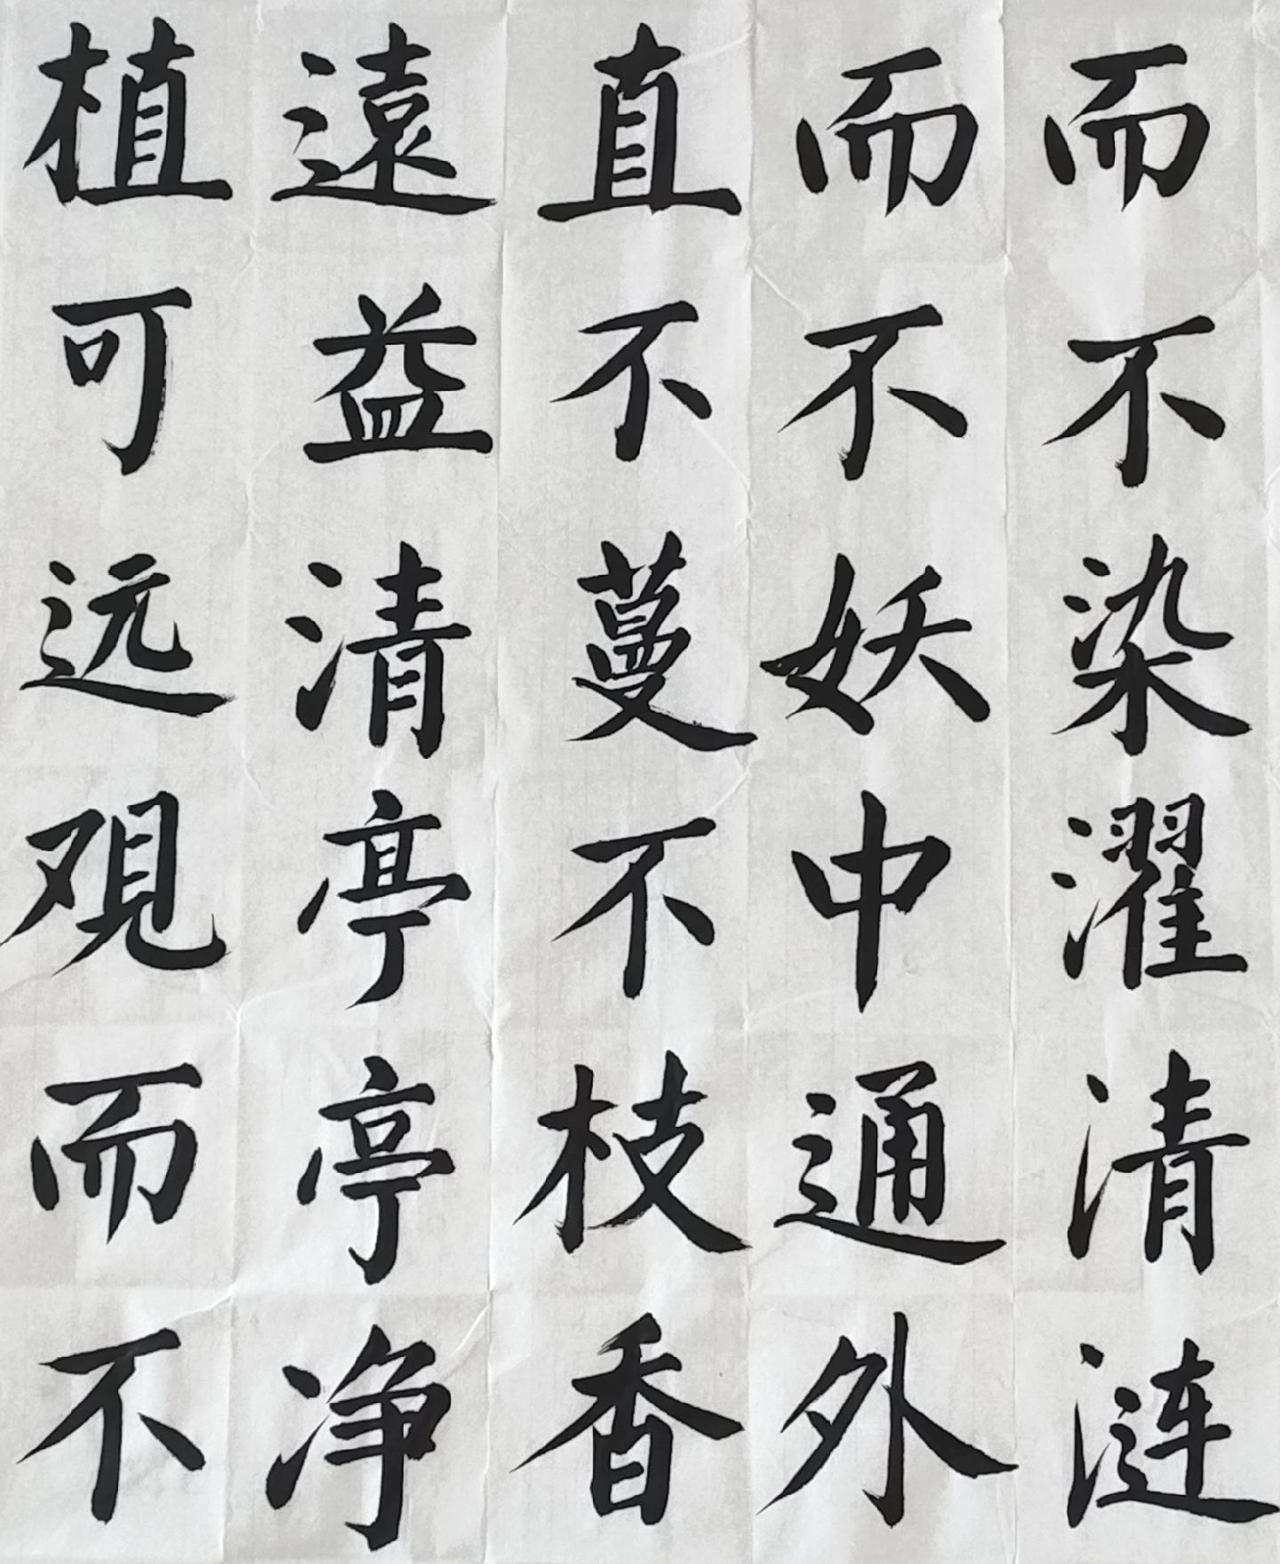 而不染濯清涟
而不妖中通外
直不蔓不枝香
遠益清亭亭净
植可远观而不